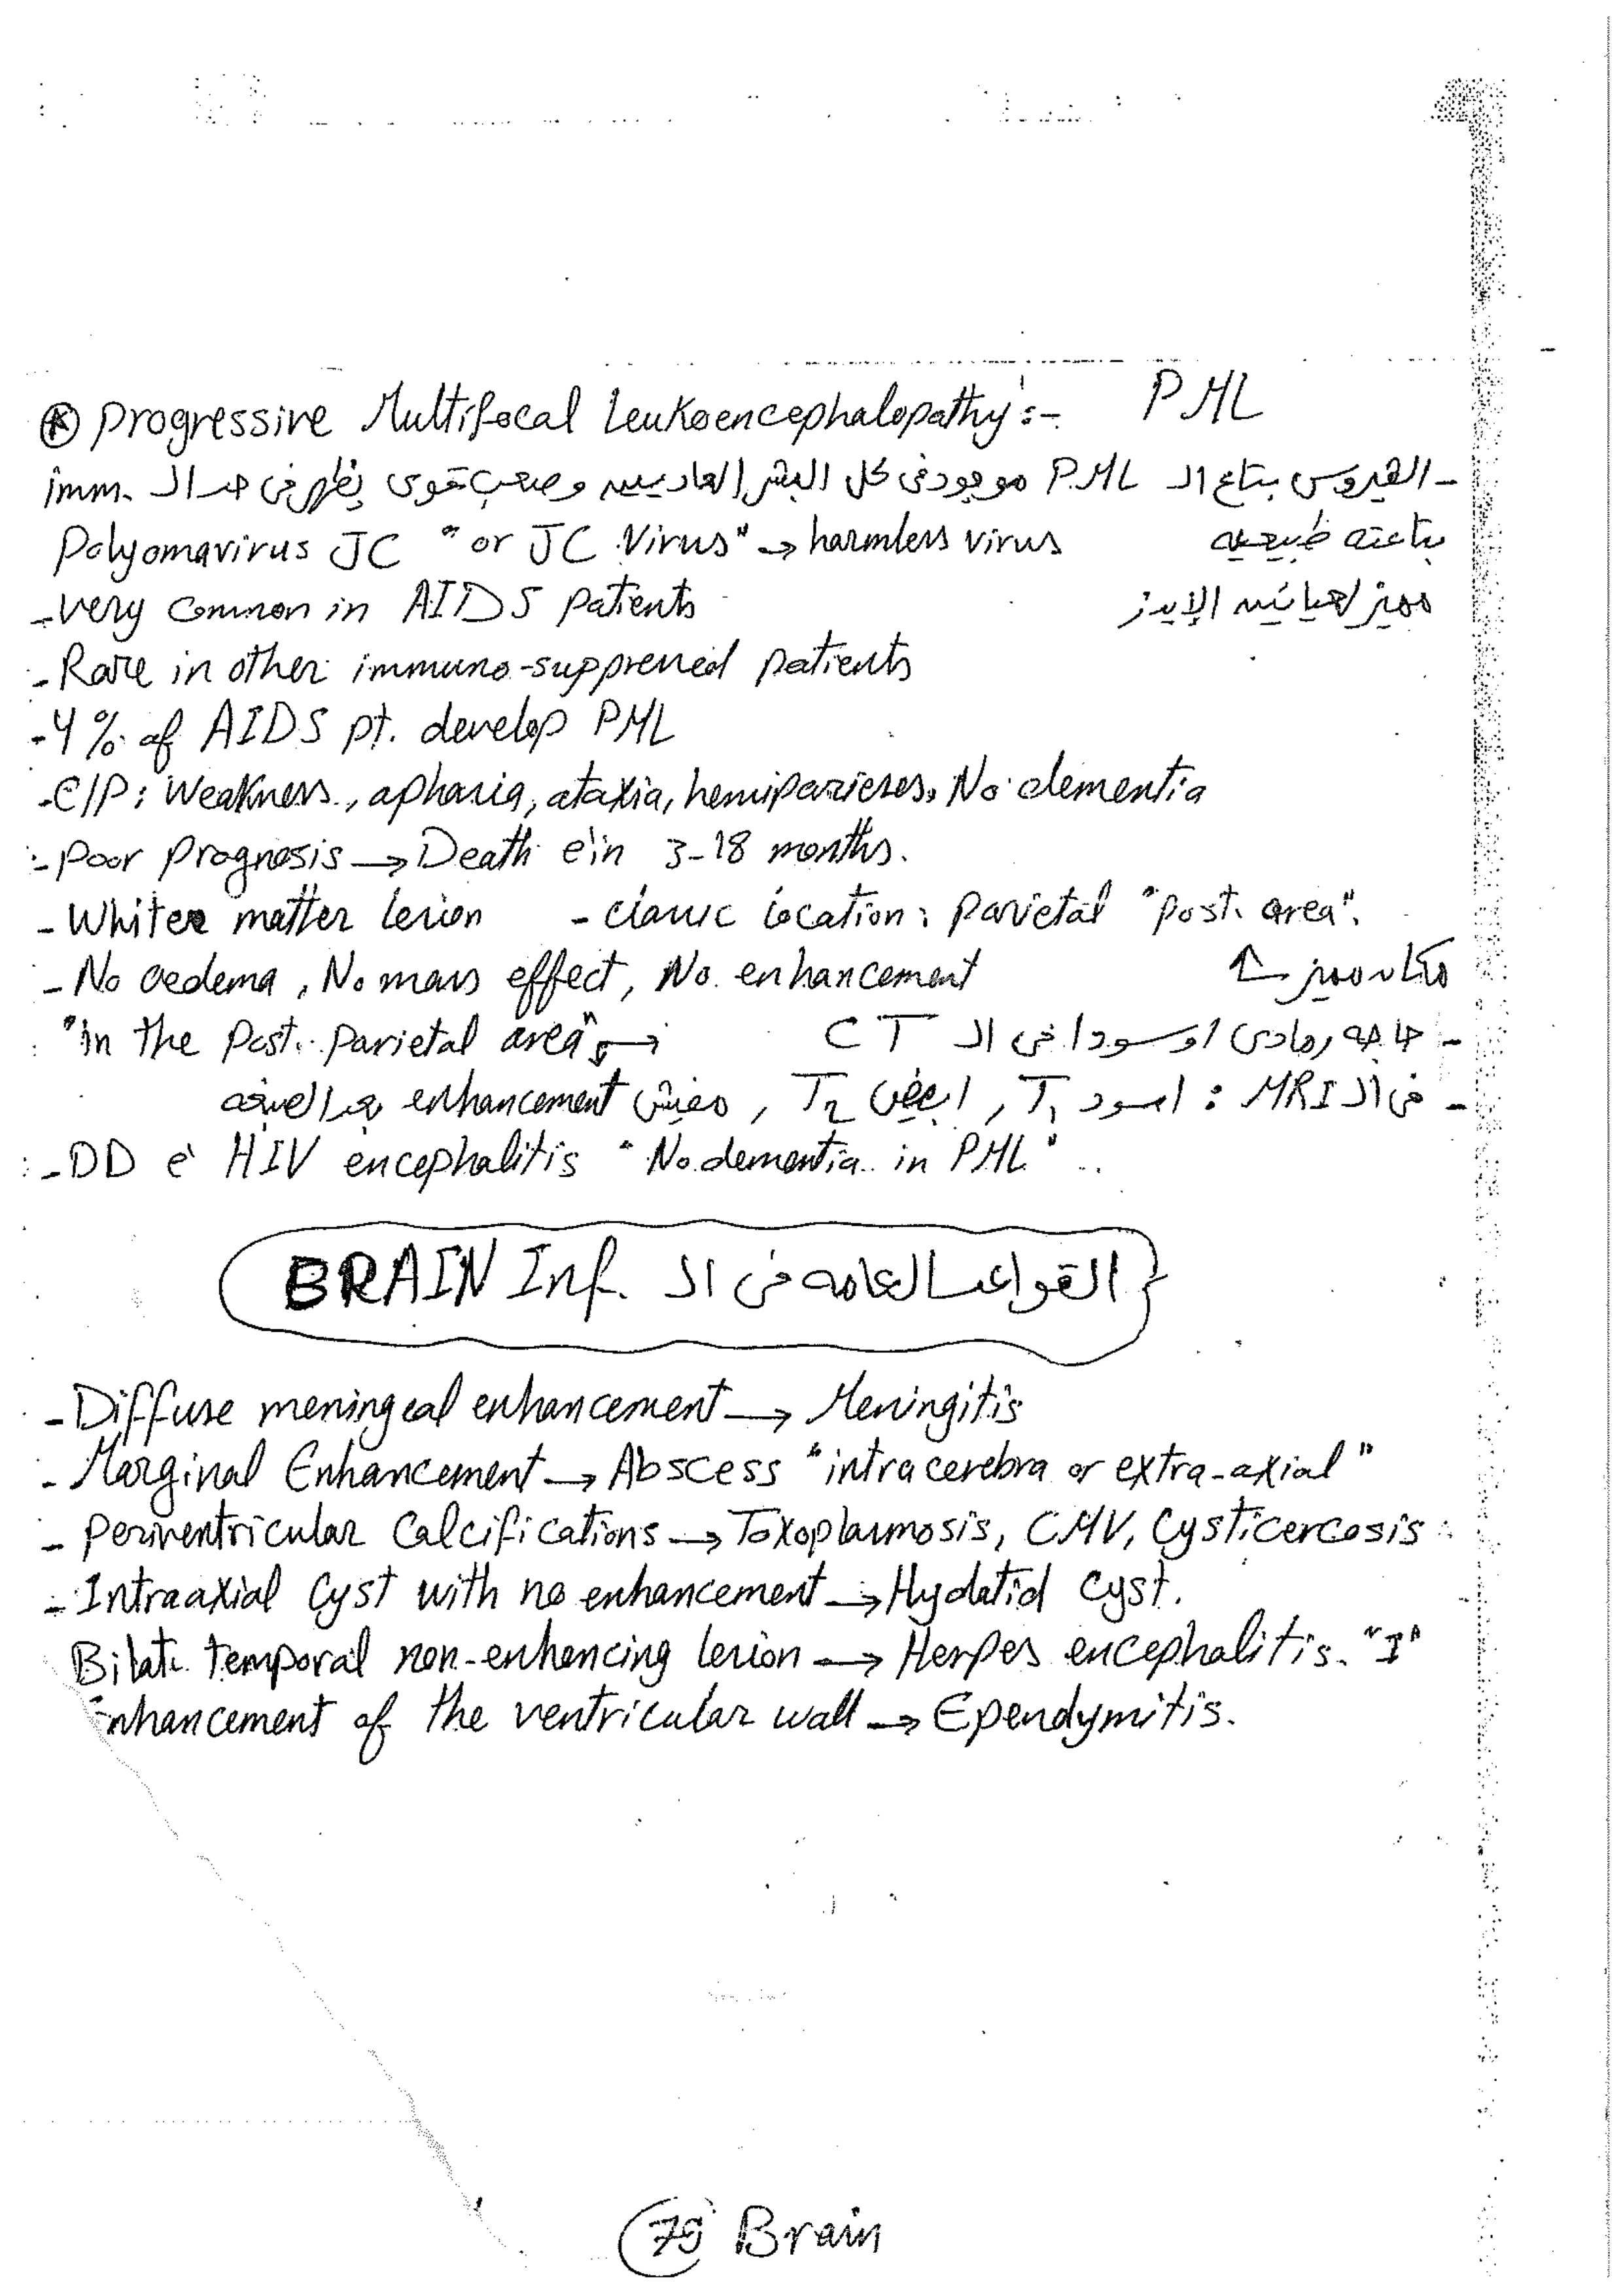 ⊛ Progressive Multifocal Leukoencephalopathy :- PML
- الفيروس بتاع الـ PML موجود فى كل البشر العاديين وصعب قوى يظهر فى حد الـ imm.
بتاعته طبيعيه
Polyomavirus JC "or JC Virus" → harmless virus
- very common in AIDS patients مميز لعيانين الإيدز
- Rare in other immuno-suppressed patients
- 4% of AIDS pt. develop PML
- C/P: Weakness, aphasia, ataxia, hemiparieses, No dementia
- poor prognosis → Death è in 3-18 months.
- White matter lesion - classic location: parietal "post. area".
- No oedema, No mass effect, No enhancement مكان مميز
"in the post. parietal area" → - حاجه رمادى او سودا فى الـ CT
- فى الـ MRI : اسود T1 , ابيض T2 , مفيش enhancement
- DD è HIV encephalitis "No dementia in PML"
القواعد العامه فى الـ BRAIN Inf.
- Diffuse meningeal enhancement → Meningitis
- Marginal Enhancement → Abscess "intracerebra or extra-axial"
- Periventricular Calcifications → Toxoplasmosis, CMV, Cysticercosis
- Intraaxial Cyst with no enhancement → Hydatid cyst.
Bilat. temporal non-enhancing lesion → Herpes encephalitis. "I"
Enhancement of the ventricular wall → Ependymitis.
79 Brain